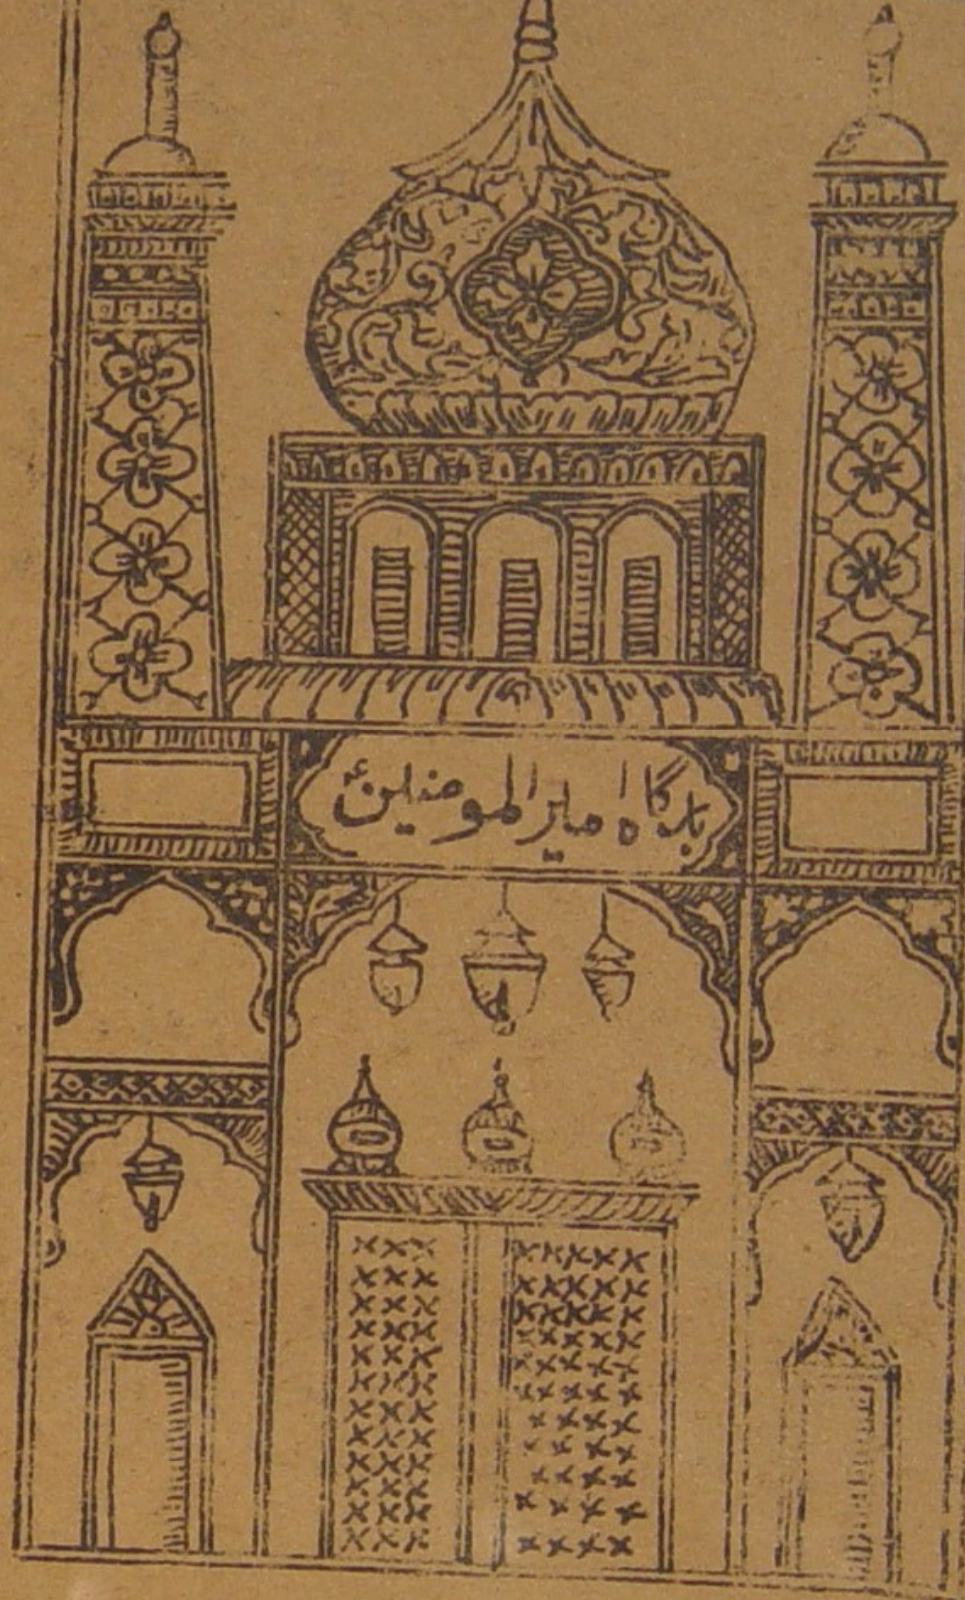 بارگاہ امیر المومنین ؑ